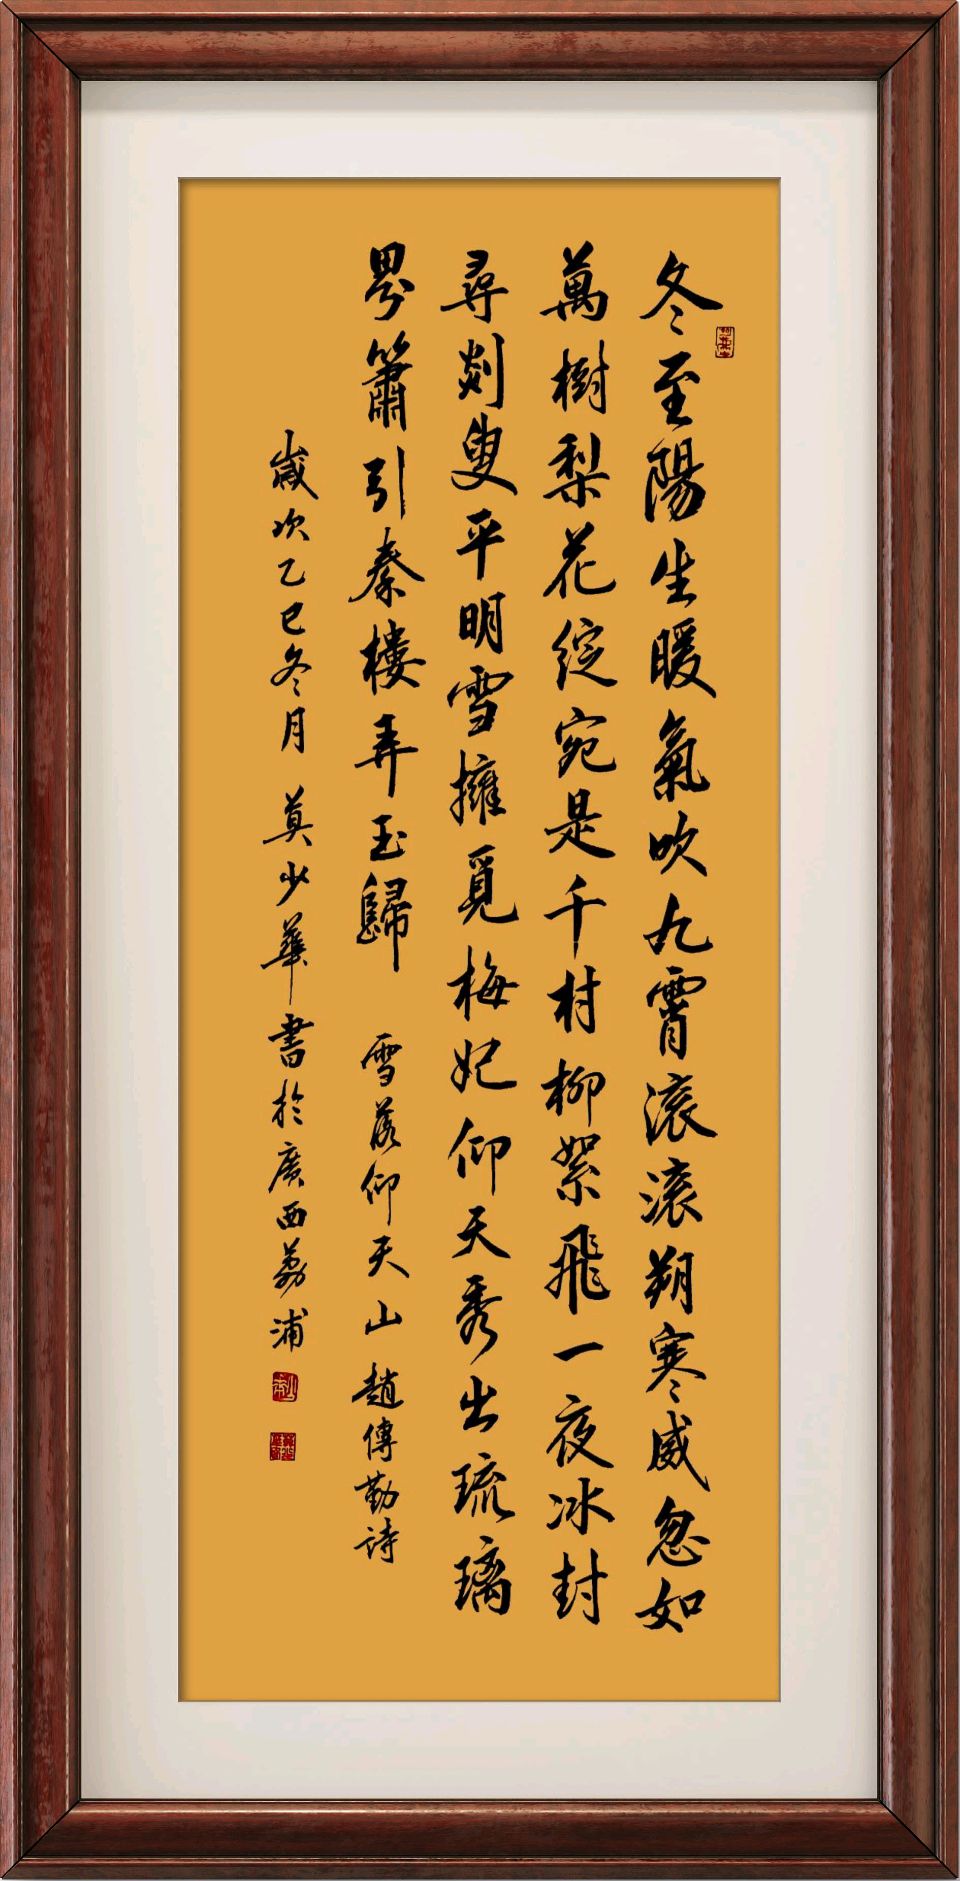 冬至陽生暖氣吹九霄滾滾朔寒威忽如
萬樹梨花綻宛是千村柳絮飛一夜冰封
尋剡叟平明雪擁覓梅妃仰天秀出琉璃
界簫引秦樓弄玉歸 雪落仰天山 趙傳勤詩
歲次乙巳冬月 莫少華書於廣西荔浦